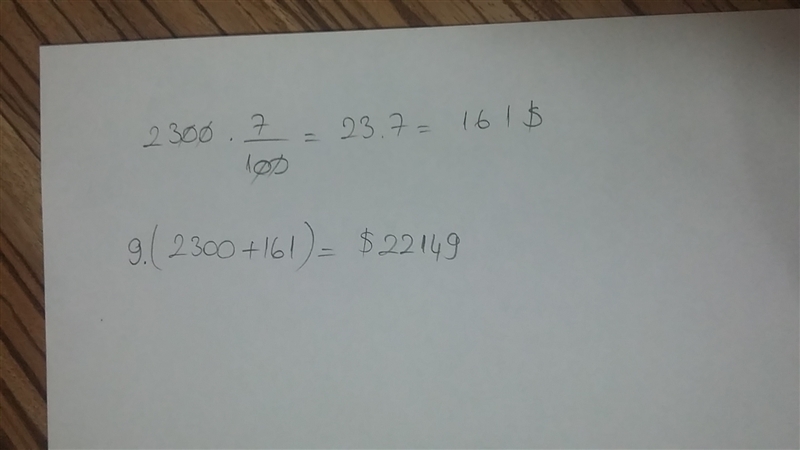 2300 . 7/100 = 23.7 = 161$
9.(2300+161) = $22149